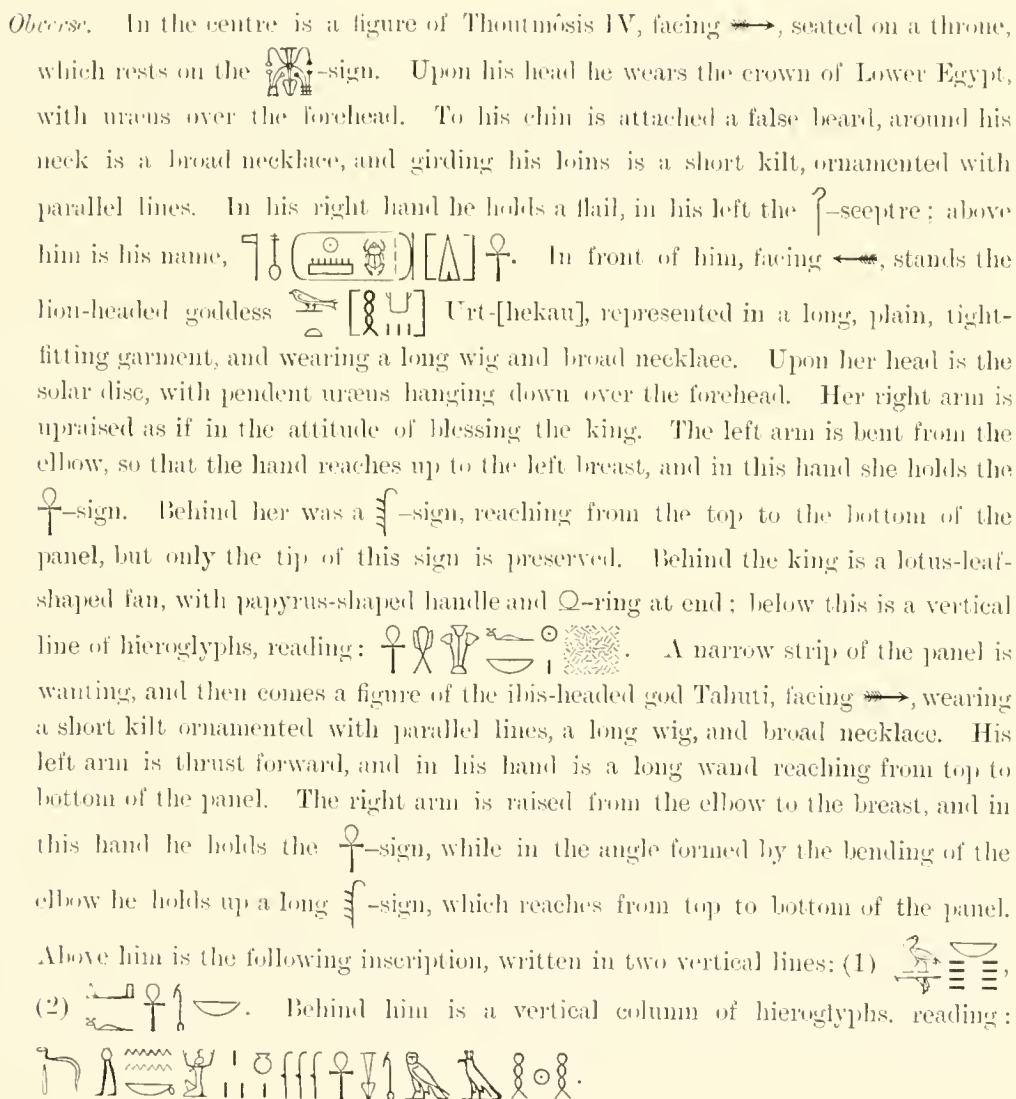 Obverse. In the centre is a figure of Thoutmôsis IV, facing →, seated on a throne,
which rests on the -sign. Upon his head he wears the crown of Lower Egypt,
with uræus over the forehead. To his chin is attached a false beard, around his
neck is a broad necklace, and girding his loins is a short kilt, ornamented with
parallel lines. In his right hand he holds a flail, in his left the 𓋾-sceptre; above
him is his name, 𓊹𓄤(𓇳𓏠𓆣)[𓏙]𓋹. In front of him, facing ←, stands the
lion-headed goddess 𓅨𓂋𓏏[𓎛𓂓𓏥] Urt-[hekau], represented in a long, plain, tight-
fitting garment, and wearing a long wig and broad necklace. Upon her head is the
solar disc, with pendent uræus hanging down over the forehead. Her right arm is
upraised as if in the attitude of blessing the king. The left arm is bent from the
elbow, so that the hand reaches up to the left breast, and in this hand she holds the
𓋹-sign. Behind her was a 𓆳-sign, reaching from the top to the bottom of the
panel, but only the tip of this sign is preserved. Behind the king is a lotus-leaf-
shaped fan, with papyrus-shaped handle and 𓍶-ring at end; below this is a vertical
line of hieroglyphs, reading: 𓋹𓎃𓆑𓎟𓇳𓏤. A narrow strip of the panel is
wanting, and then comes a figure of the ibis-headed god Tahuti, facing →, wearing
a short kilt ornamented with parallel lines, a long wig, and broad necklace. His
left arm is thrust forward, and in his hand is a long wand reaching from top to
bottom of the panel. The right arm is raised from the elbow to the breast, and in
this hand he holds the 𓋹-sign, while in the angle formed by the bending of the
elbow he holds up a long 𓆳-sign, which reaches from top to bottom of the panel.
Above him is the following inscription, written in two vertical lines: (1) 𓅝𓎟,
(2) 𓂞𓆑𓋹𓌀𓎟. Behind him is a vertical column of hieroglyphs, reading:
𓈗𓎟𓁨𓆳𓆳𓆳𓋹𓊽𓌀𓅓𓎛𓇳𓎛.